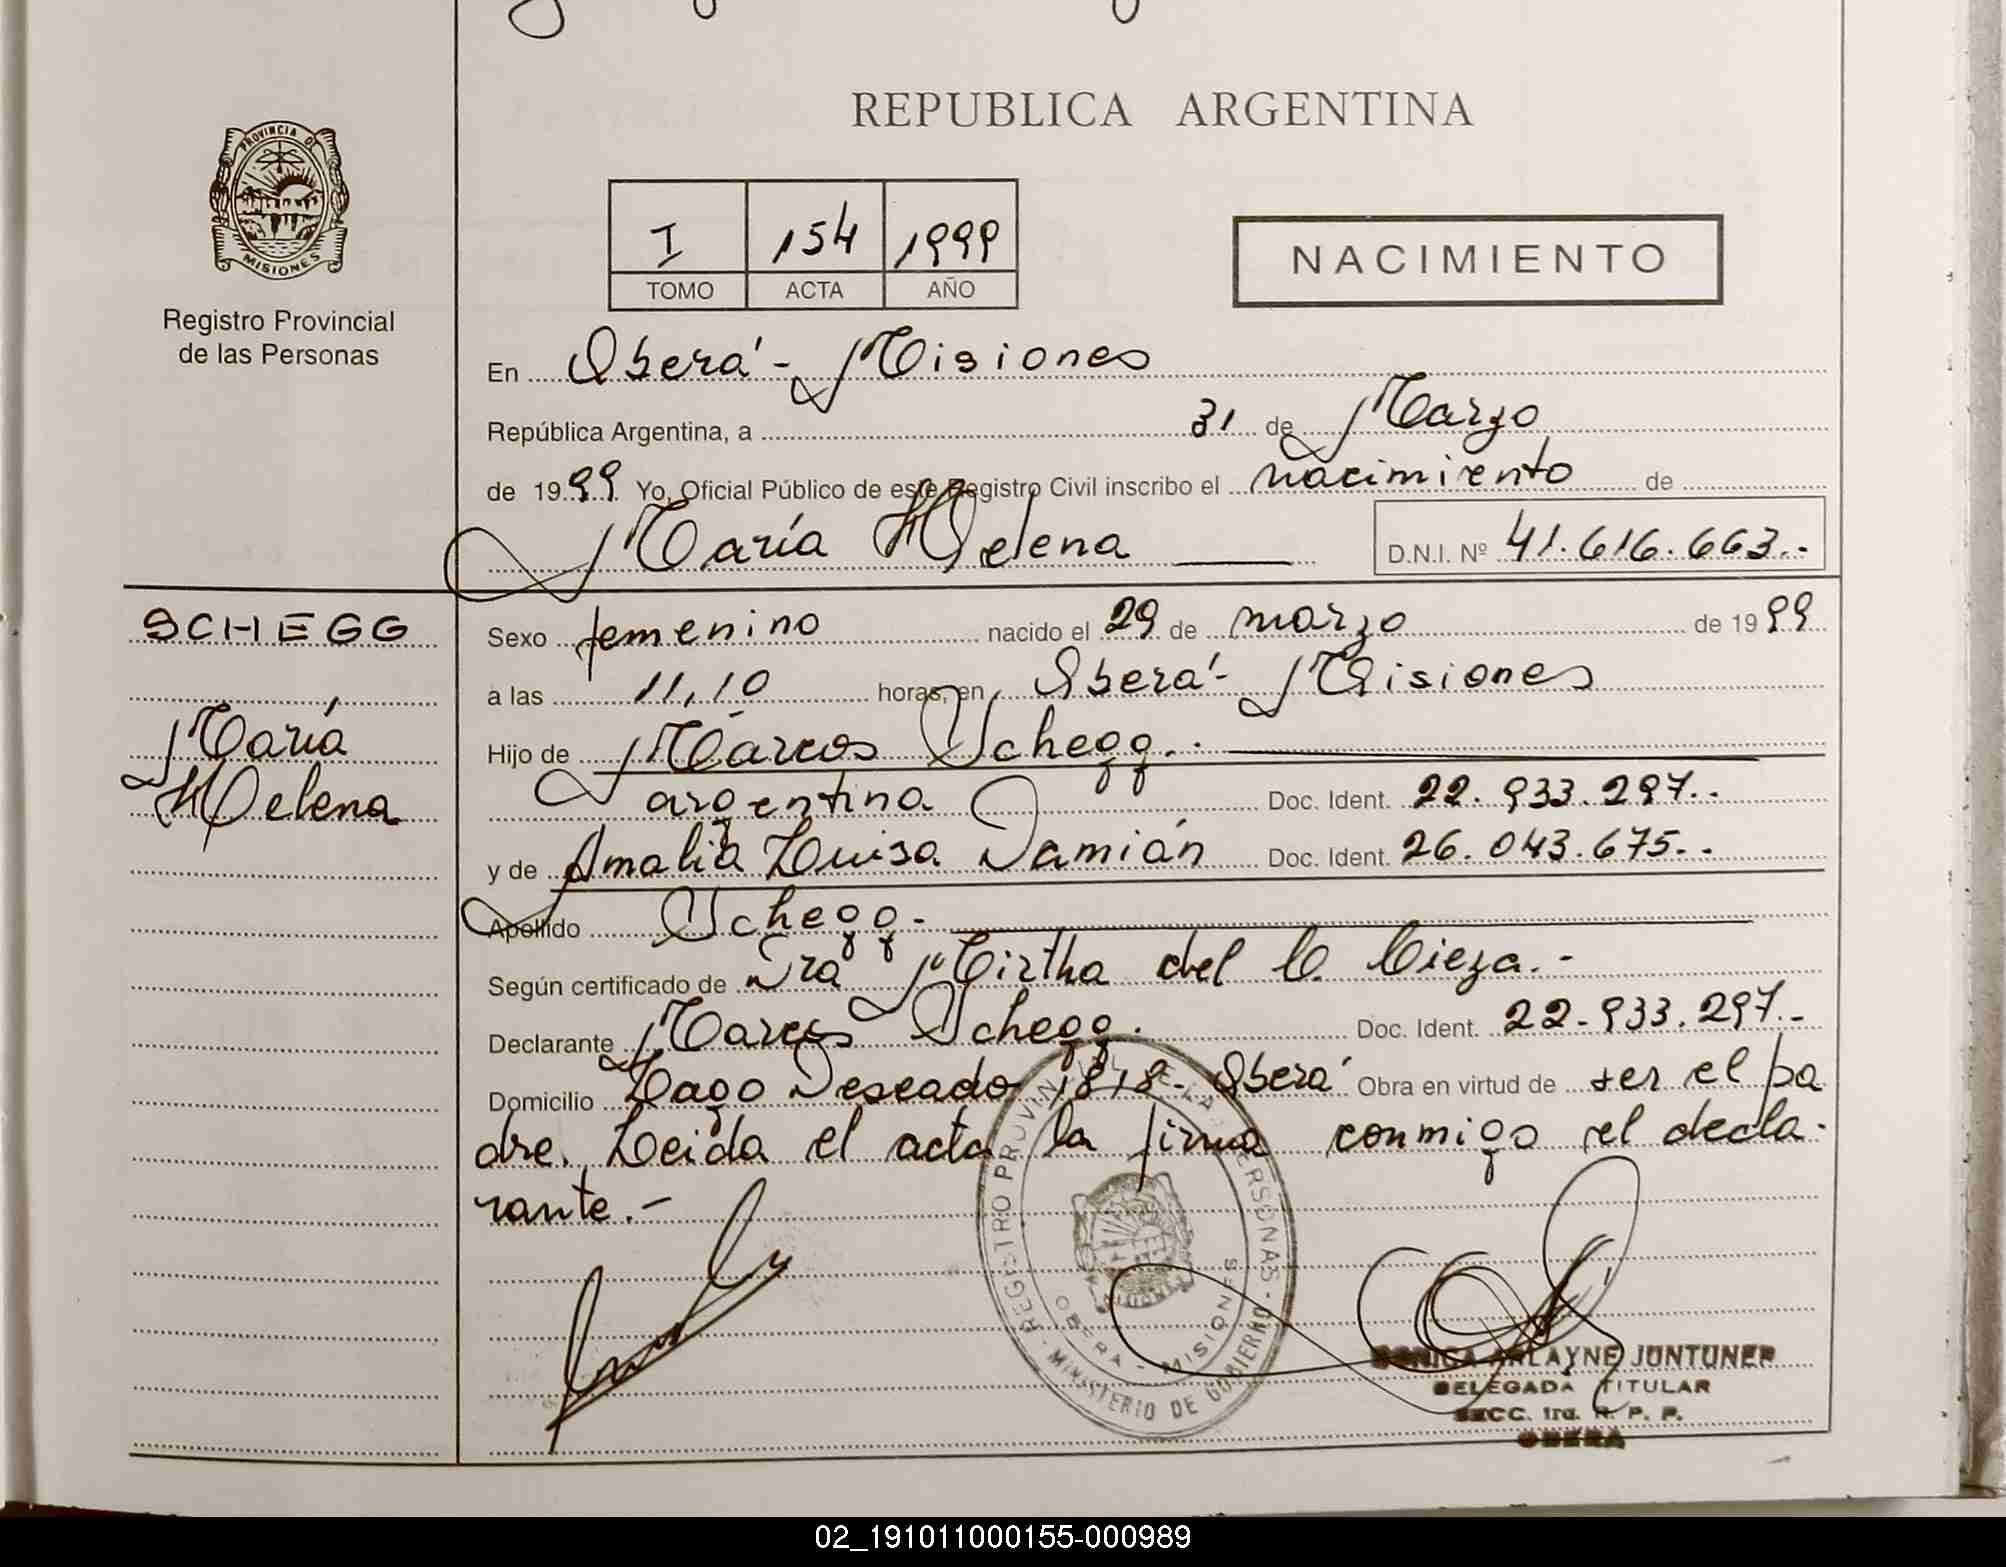 REPUBLICA ARGENTINA
PROVINCIA DE
MISIONES
Registro Provincial
de las Personas
I 154 1999
TOMO ACTA AÑO
NACIMIENTO
En Oberá - Misiones
República Argentina, a 31 de Marzo
de 1999 Yo, Oficial Público de este Registro Civil inscribo el nacimiento de
María Helena D.N.I. Nº 41.616.663.-
SCHEGG
María
Helena
Sexo femenino nacido el 29 de marzo de 1999
a las 11,10 horas, en Oberá - Misiones
Hijo de Marcos Schegg.-
argentina Doc. Ident. 22.933.297.-
y de Amalia Luisa Damián Doc. Ident. 26.043.675.-
Apellido Schegg.-
Según certificado de Dra Mirtha del C. Cieza.-
Declarante Marcos Schegg. Doc. Ident. 22.933.297.-
Domicilio Lago Deseado 1818 - Oberá Obra en virtud de ser el pa
dre. Leida el acta la firma conmigo el decla-
rante.-
REGISTRO PROVINCIAL DE LAS PERSONAS - MINISTERIO DE GOBIERNO -
OBERA - MISIONES
ARLAYNE JUNTUNEN
DELEGADA TITULAR
SECC. 1ra. R. P. P.
OBERA
02_191011000155-000989